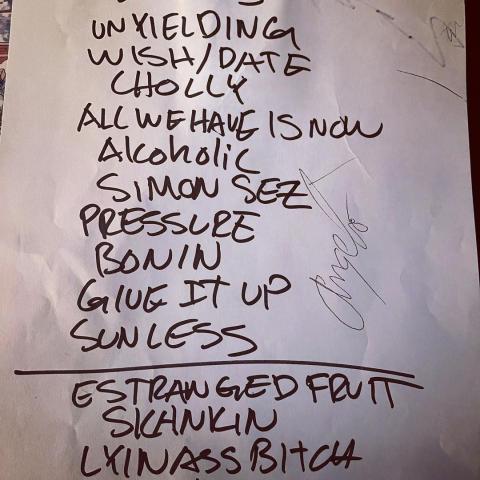 UNYIELDING
WISH/DATE
CHOLLY
ALL WE HAVE IS NOW
Alcoholic
SIMON SEZ
PRESSURE
BONIN
GIVE IT UP
SUNLESS
ESTRANGED FRUIT
SKANKIN
LYINASS BITCH
Angelo